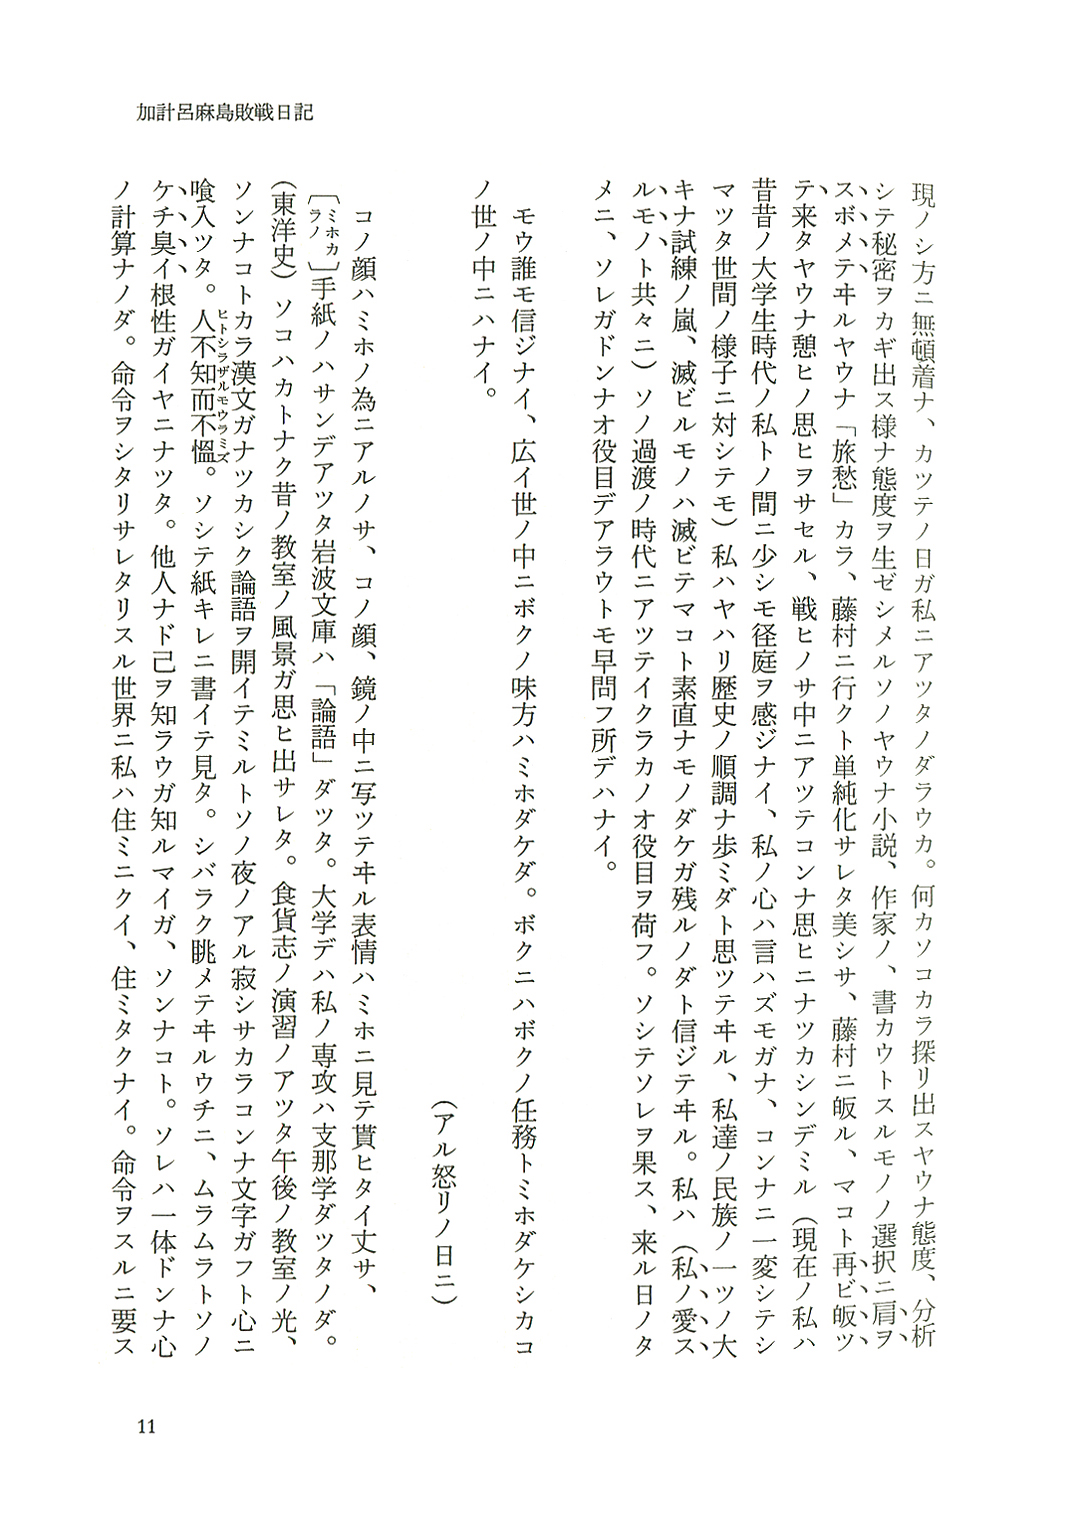 加計呂麻島敗戦日記
現ノシ方ニ無頓着ナ、カツテノ日ガ私ニアツタノダラウカ。何カソコカラ探リ出スヤウナ態度、分析
シテ秘密ヲカギ出ス様ナ態度ヲ生ゼシメルソノヤウナ小説、作家ノ、書カウトスルモノノ選択ニ肩ヲ
スボメテヰルヤウナ「旅愁」カラ、藤村ニ行クト単純化サレタ美シサ、藤村ニ皈ル、マコト再ビ皈ツ
テ来タヤウナ憩ヒノ思ヒヲサセル、戦ヒノサ中ニアツテコンナ思ヒニナツカシンデミル（現在ノ私ハ
昔昔ノ大学生時代ノ私トノ間ニ少シモ径庭ヲ感ジナイ、私ノ心ハ言ハズモガナ、コンナニ一変シテシ
マツタ世間ノ様子ニ対シテモ）私ハヤハリ歴史ノ順調ナ歩ミダト思ツテヰル、私達ノ民族ノ一ツノ大
キナ試練ノ嵐、滅ビルモノハ滅ビテマコト素直ナモノダケガ残ルノダト信ジテヰル。私ハ（私ノ愛ス
ルモノト共々ニ）ソノ過渡ノ時代ニアツテイクラカノオ役目ヲ荷フ。ソシテソレヲ果ス、来ル日ノタ
メニ、ソレガドンナオ役目デアラウトモ早問フ所デハナイ。
モウ誰モ信ジナイ、広イ世ノ中ニボクノ味方ハミホダケダ。ボクニハボクノ任務トミホダケシカコ
ノ世ノ中ニハナイ。
（アル怒リノ日ニ）
コノ顔ハミホノ為ニアルノサ、コノ顔、鏡ノ中ニ写ツテヰル表情ハミホニ見テ貰ヒタイ丈サ、
〔ミホカラノ〕手紙ノハサンデアツタ岩波文庫ハ「論語」ダツタ。大学デハ私ノ専攻ハ支那学ダツタノダ。
（東洋史）ソコハカトナク昔ノ教室ノ風景ガ思ヒ出サレタ。食貨志ノ演習ノアツタ午後ノ教室ノ光、
ソンナコトカラ漢文ガナツカシク論語ヲ開イテミルトソノ夜ノアル寂シサカラコンナ文字ガフト心ニ
喰入ツタ。人不知而不慍。ソシテ紙キレニ書イテ見タ。シバラク眺メテヰルウチニ、ムラムラトソノ
ヒトシラザルモウラミズ
ケチ臭イ根性ガイヤニナツタ。他人ナド己ヲ知ラウガ知ルマイガ、ソンナコト。ソレハ一体ドンナ心
ノ計算ナノダ。命令ヲシタリサレタリスル世界ニ私ハ住ミニクイ、住ミタクナイ。命令ヲスルニ要ス
11